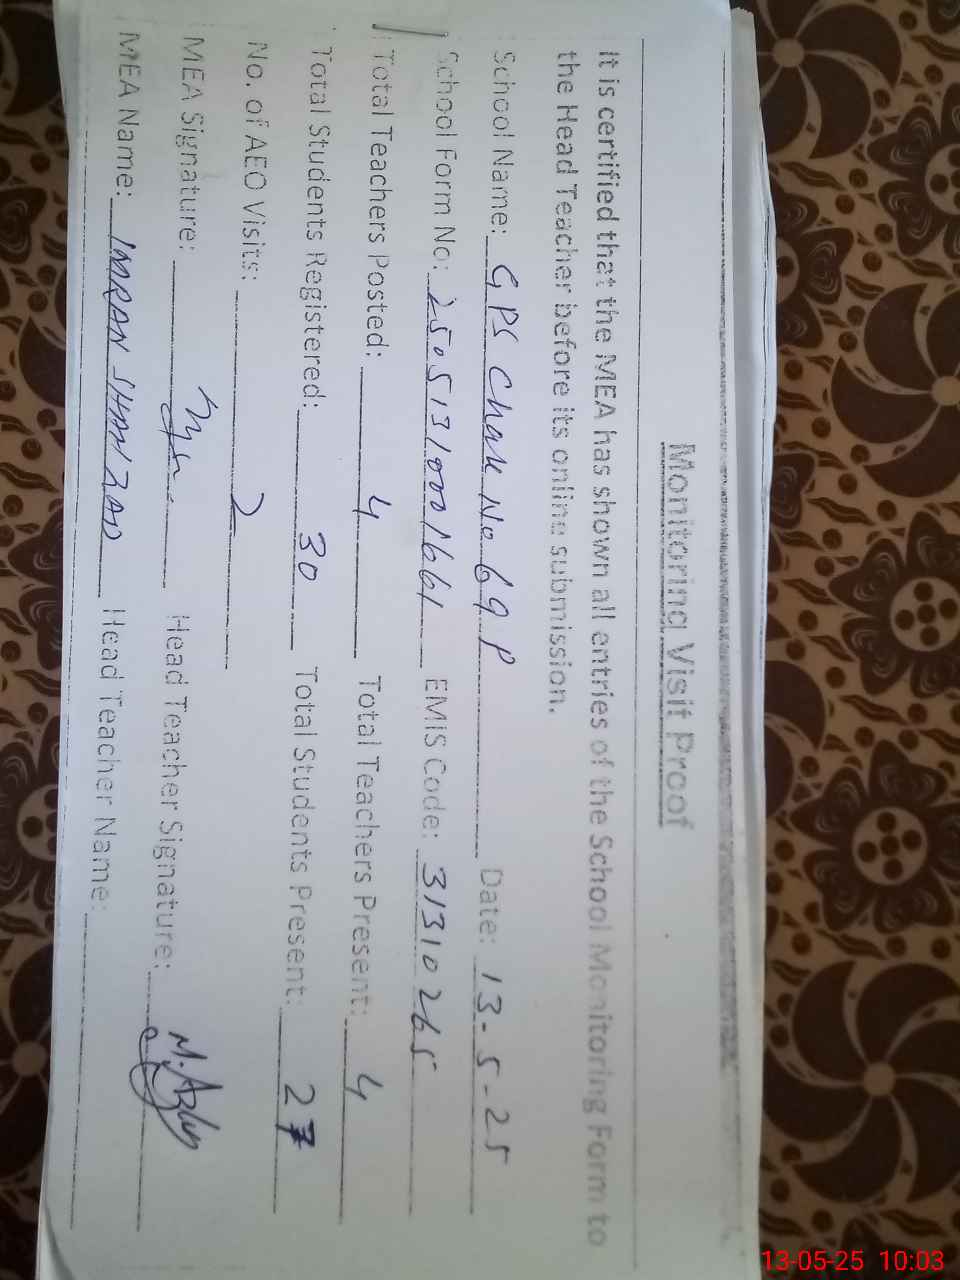 Monitoring Visit Proof
It is certified that the MEA has shown all entries of the School Monitoring Form to
the Head Teacher before its online submission.
School Name: GPS Chak No 69 P Date: 13-5-25
School Form No: 25051310001661 EMIS Code: 31310265
Total Teachers Posted: 4 Total Teachers Present: 4
Total Students Registered: 30 Total Students Present: 27
No. of AEO Visits: 2
MEA Signature: Head Teacher Signature:
MEA Name: IMRAN SHAHZAD Head Teacher Name:
13-05-25 10:03